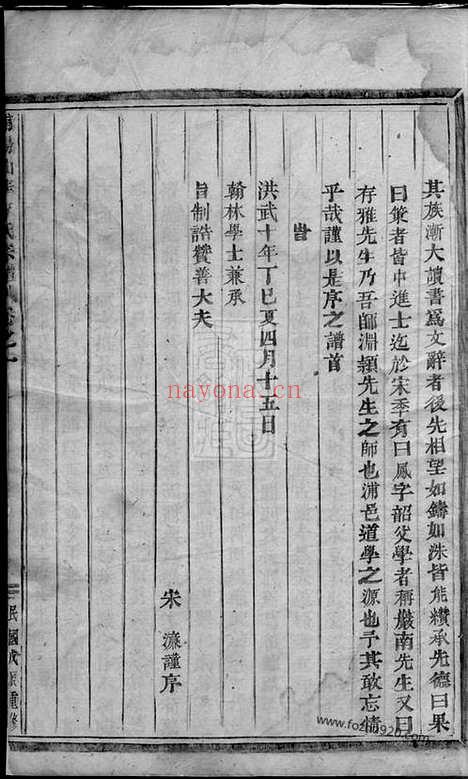 其族漸大讀書爲文辭者後先相望如鑄如洙皆能纘承先德曰果
曰策者皆中進士迄於宋季有曰鳳字韶父學者稱巖南先生又曰
存雅先生乃吾師淵頴先生之師也浦邑道學之源也予其敢忘情
乎哉謹以是序之譜首
旹
洪武十年丁巳夏四月十五日
翰林學士兼承
旨制誥贊善大夫
宋濂謹序
民國戊辰重修
nayona.cn